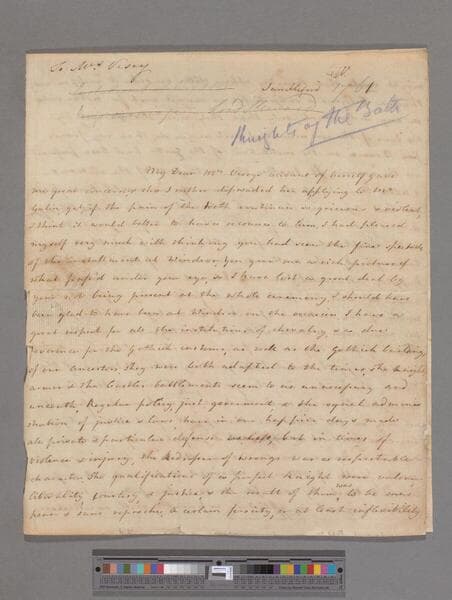 To Mrs Vesey
Sandleford
Knights of the Bath
My Dear Mrs Vesey's account of herself gave
me great concern & I rather dissuaded her applying to Mr
yet if the pain of the tooth continues so grievous & violent
I think it would better to have recourse to him, I had pleased
myself very much with thinking you had seen the fine spectacle
of the instalment at Windsor, you gave me a rich picture of
what pass'd under your eye, so I have lost a good deal by
your not being present at the whole ceremony, I should have
been glad to have been at Windsor on the occasion I have a
great respect for all the institutions of chevalry, & a due
reverence for the Gothick customs, as well as the Gothick buildings
of our ancestors, they were both adapted to the times, the knights
armour & the Castles battlements seem to us unnecessary and
uncouth, Regular policy, just government & the equal adminis
tration of justice & laws have in our happier days made
all private & particular defense useless, but in times of
violence & injury, the Redresser of wrongs was a respectable
character. The qualifications of a perfect Knight were valour
liberality courtesy, & justice, & the result of them, was to be sans
peur & sans reproche, a certain ferocity, or at least inflexibility